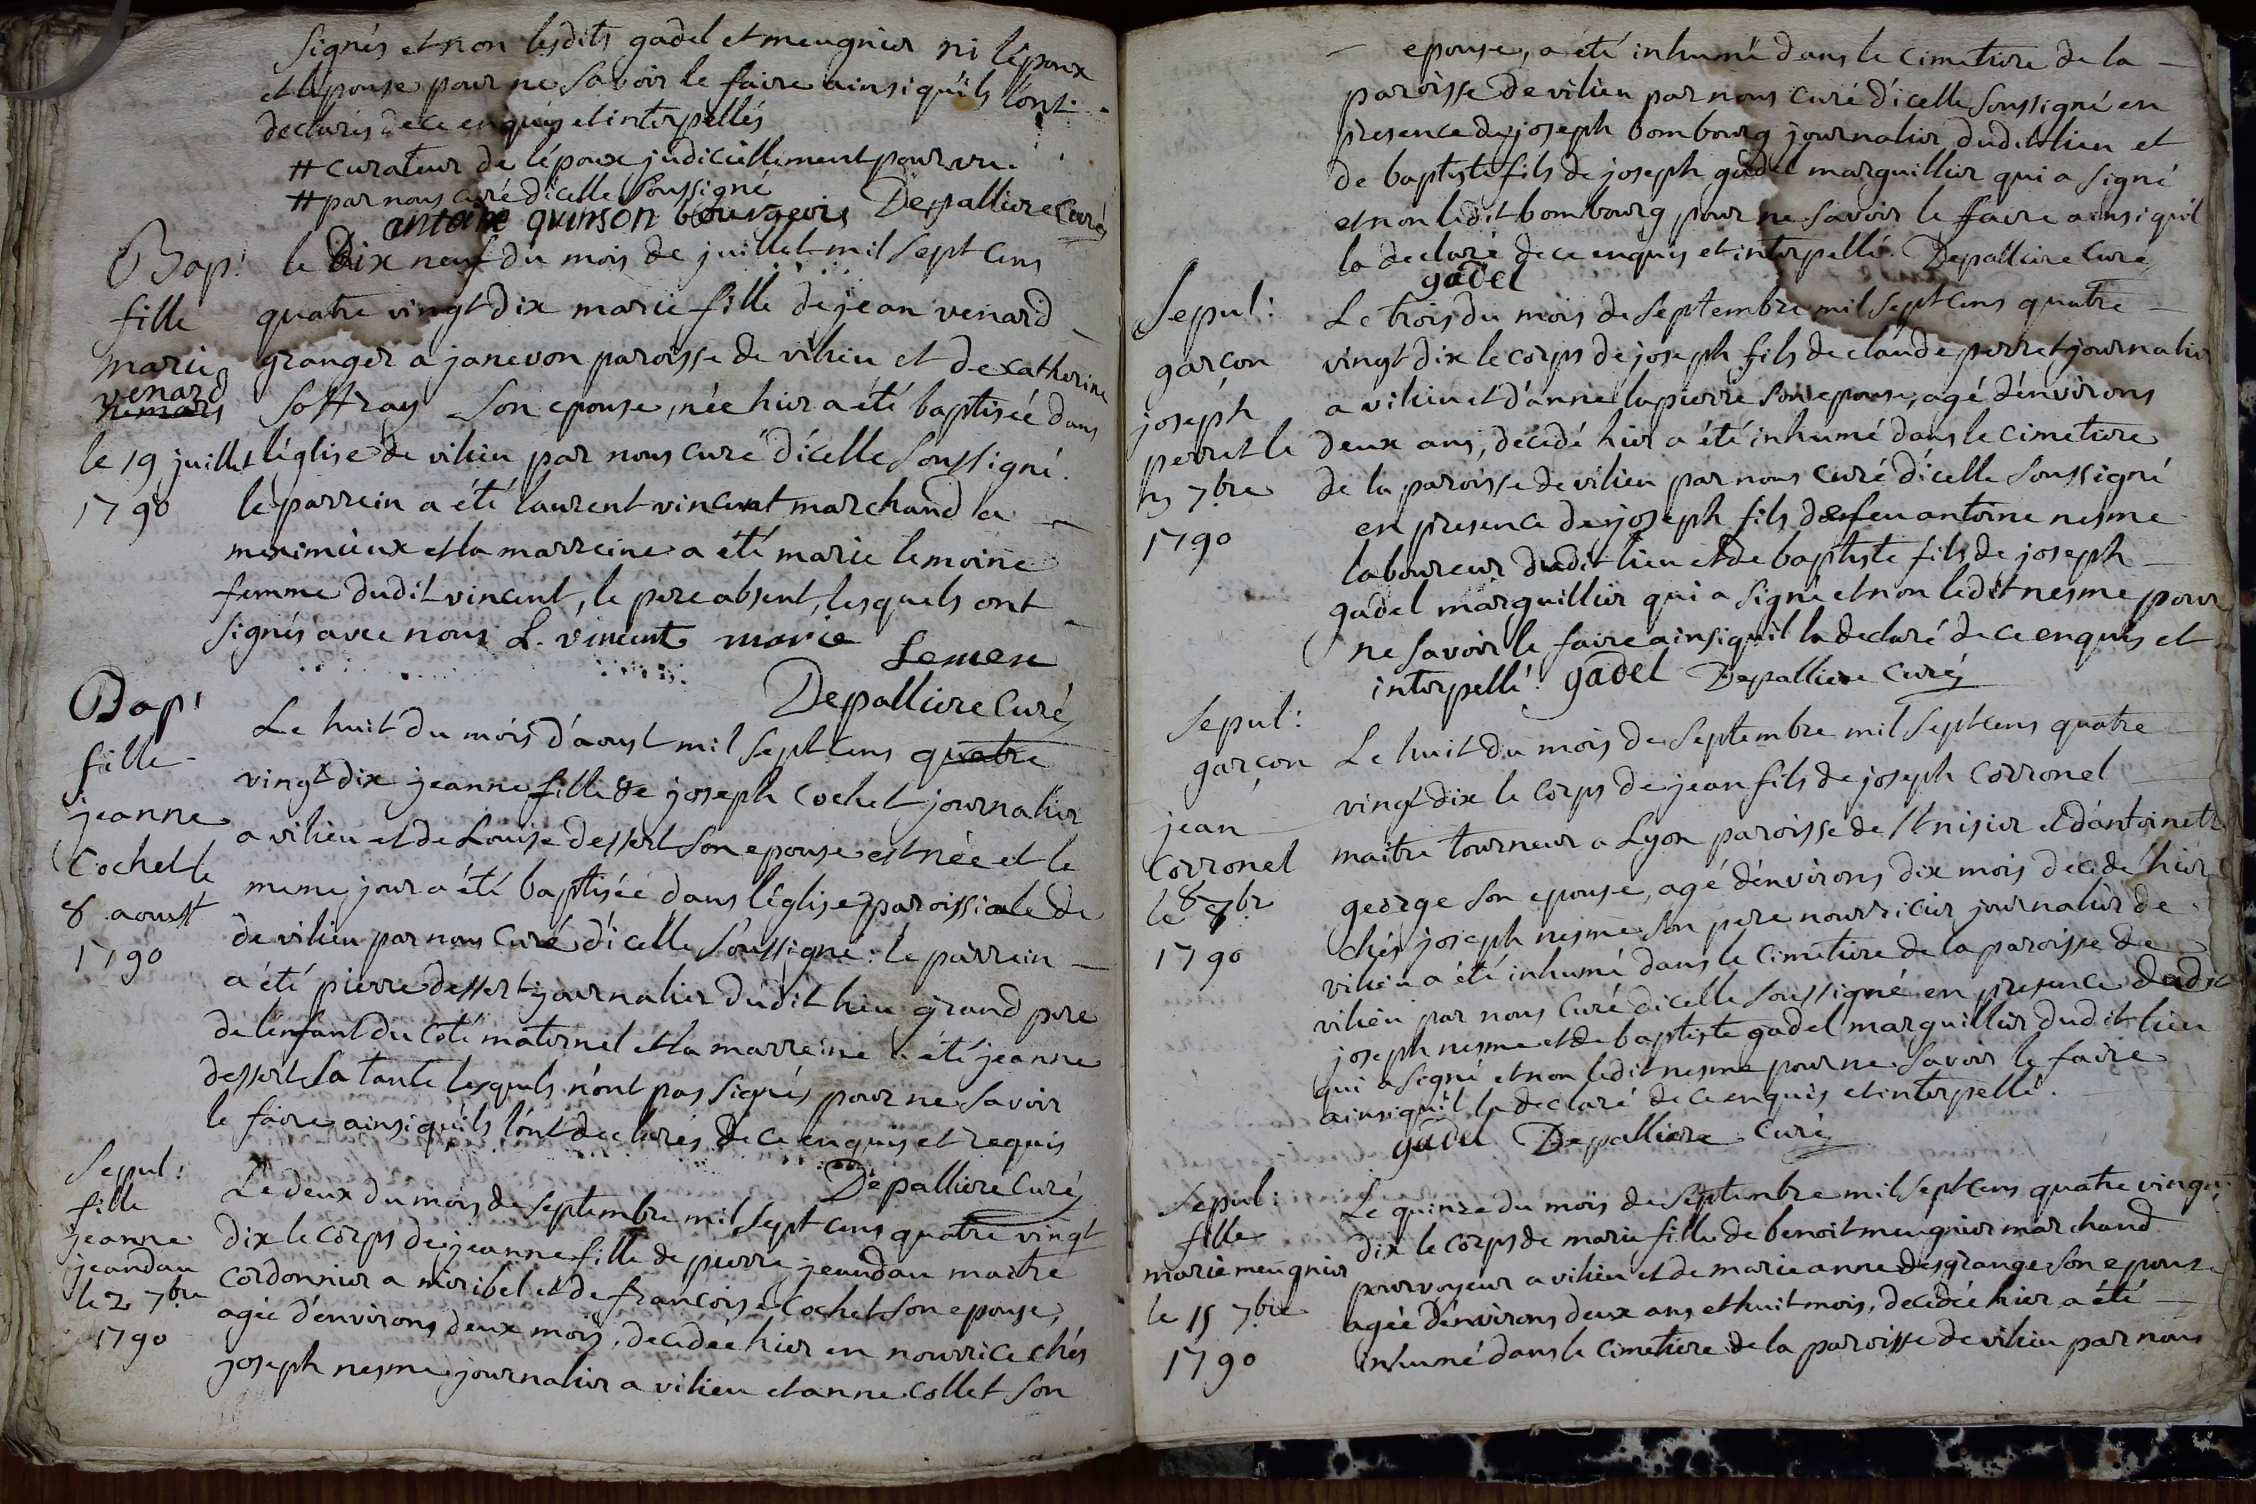 signés et non lesdits gadel et meugnier ni l'époux
et l'epouse pour ne savoir le faire ainsi qu'ils l'ont
declarés de ce enquis et interpellés
# curateur de l'époux judiciellement pourvu
# par nous curé d'icelle soussigné
antoine quinson bourgeois Depalliere Curé
Bap:
fille
marie
venard
le 19 juillet
1790
le Dix neuf du mois de juillet mil sept cens
quatre vingt dix marie fille de jean venard
granger a janevon paroisse de vilieu et de catherine
soffray son epouse, née hier a été baptisée dans
l'église de vilieu par nous curé d'icelle soussigné.
le parrein a été laurent vincent marchand a
meximieux et la marreine a été marie lemoine
femme dudit vincent, le pere absent, lesquels ont
signés avec nous L. vincent marie
Lemen
Depalliere Curé
Bap:
fille
jeanne
Cochet le
8 aoust
1790
Le huit du mois d'aoust mil sept cens quatre
vingt dix jeanne fille de joseph cochet journalier
a vilieu et de Louise dessert son epouse est née et le
meme jour a été baptisée dans l'église paroissiale de
de vilieu par nous Curé d'icelle soussigné: le parrein
a été pierre dessert journalier dudit lieu grand pere
de l'enfant du coté maternel et la marreine a été jeanne
dessert sa tante lesquels n'ont pas signés pour ne savoir
le faire ainsi qu'ils l'ont declarés de ce enquis et requis
Depalliere Curé
Sepul:
fille
jeanne
jeandau
le 2 7bre
1790
Le deux du mois de septembre mil sept cens quatre vingt
dix le corps de jeanne fille de pierre jeandau maitre
cordonnier a miribel et de francoise Cochet son epouse,
agée d'environs deux mois, decedée hier en nourrice chés
joseph nesme journalier a vilieu et anne collet son
epouse, a été inhumé dans le cimetiere de la
paroisse de vilieu par nous curé d'icelle soussigné en
presence de joseph bombourg journalier dudit lieu et
de baptiste fils de joseph gadel marguillier qui a signé
et non ledit bombourg pour ne savoir le faire ainsi quil
la declaré de ce enquis et interpellé. Depalliere Curé
gadel
Sepul:
garçon
joseph
perret le
3 7bre
1790
Le trois du mois de septembre mil sept cens quatre
vingt dix le corps de joseph fils de claude perret journalier
a vilieu et d'anne lapierre son epouse, agé d'environs
deux ans, decedé hier a été inhumé dans le cimetiere
de la paroisse de vilieu par nous curé d'icelle soussigné
en presence de joseph fils de feu antoine nesme
laboureur dudit lieu et de baptiste fils de joseph
gadel marguillier qui a signé et non ledit nesme pour
ne savoir le faire ainsi quil la declaré de ce enquis et
interpellé. gadel Depalliere Curé
Sepul:
garçon
jean
Corronel
le 8 7br
1790
Le huit du mois de septembre mil sept cens quatre
vingt dix le corps de jean fils de joseph corronel
maitre tourneur a Lyon paroisse de st nisier et d'antoinette
george son epouse, agé d'environs dix mois decedé hier
chés joseph nesme son pere nourricier journalier de
vilieu a été inhumé dans le cimetiere de la paroisse de
vilieu par nous curé dicelle soussigné en presence dudit
joseph nesme et de baptiste gadel marguillier dudit lieu
qui a signé et non ledit nesme pour ne savoir le faire
ainsi quil la declaré de ce enquis et interpellé.
gadel Depalliere Curé
Sepul:
fille
marie meugnier
le 15 7bre
1790
Le quinze du mois de septembre mil sept cens quatre vingt
dix le corps de marie fille de benoit meugnier marchand
pourvoyeur a vilieu et de marie anne desgrange son epouse
agée d'environs deux ans et huit mois, decedée hier a été
inhumé dans le cimetiere de la paroisse de vilieu par nous